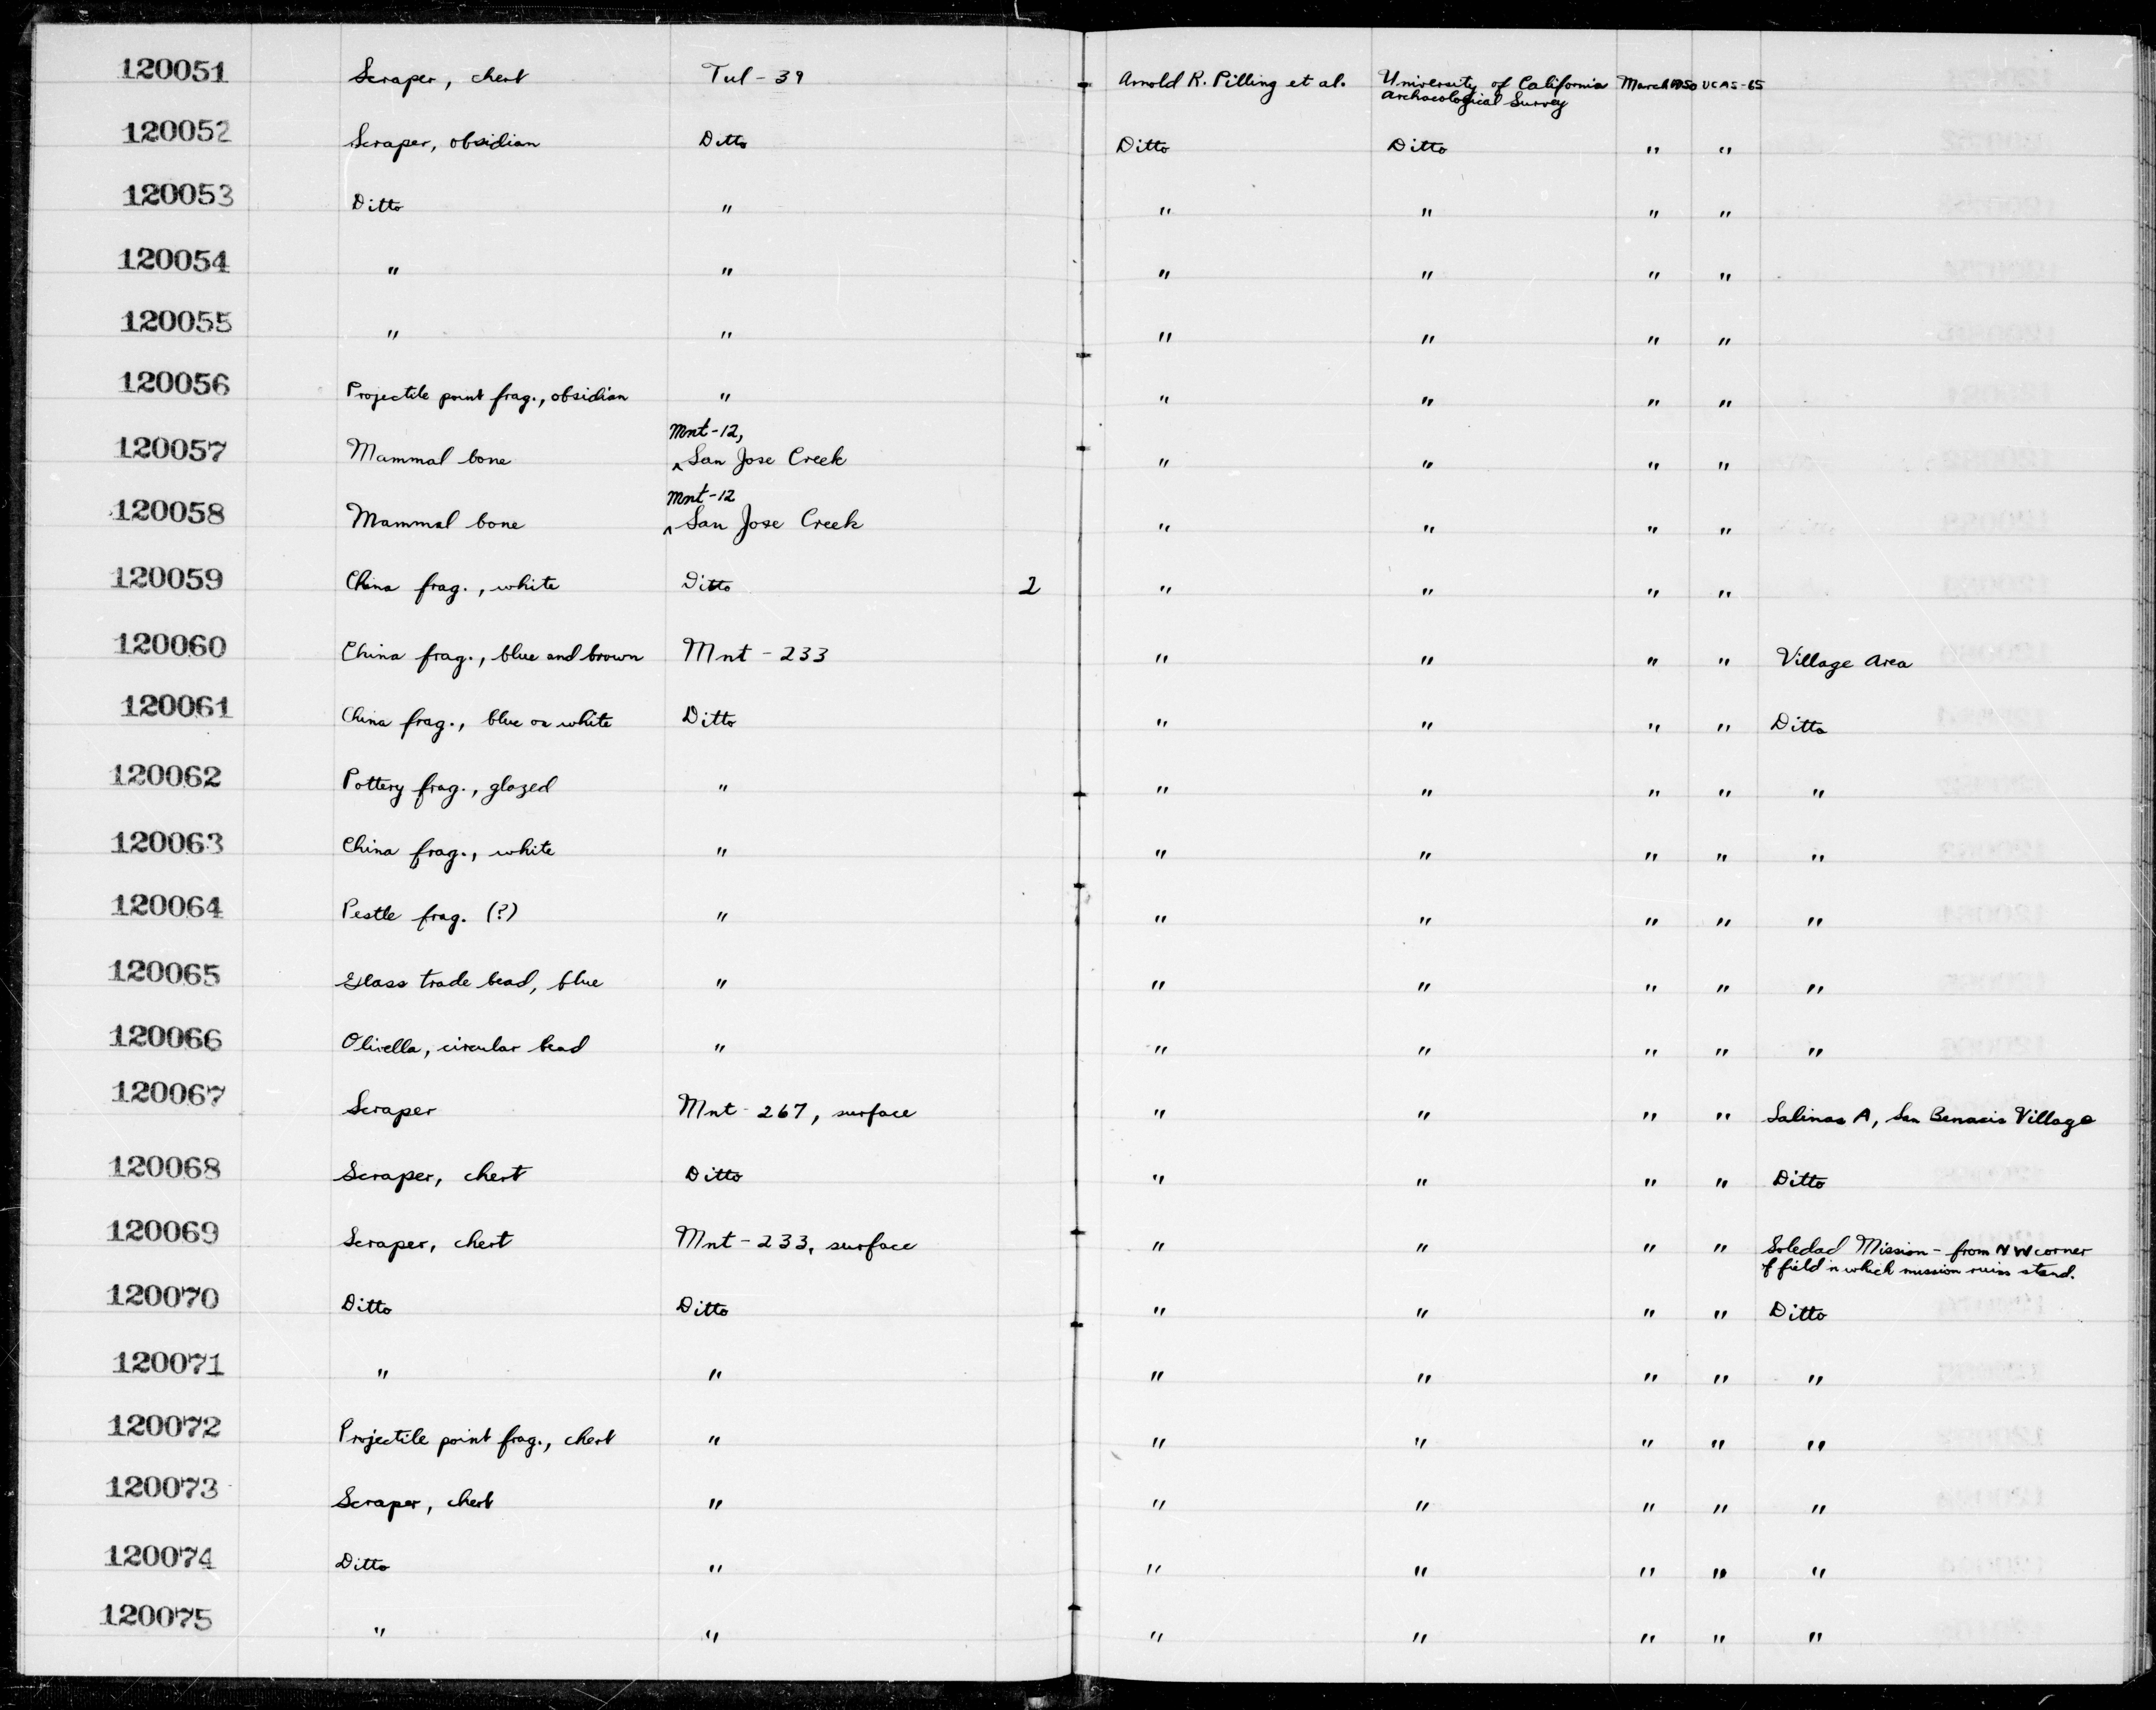 120051 Scraper, chert Tul-39 Arnold R. Pilling et al. University of California Archaeological Survey March 1950 UCAS-65
120052 Scraper, obsidian Ditto Ditto Ditto " "
120053 Ditto " " " " "
120054 " " " " " "
120055 " " " " " "
120056 Projectile point frag., obsidian " " " " "
120057 Mammal bone Mnt-12, ^San Jose Creek " " " "
120058 Mammal bone Mnt-12 ^San Jose Creek " " " "
120059 China frag., white Ditto 2 " " " "
120060 China frag., blue and brown Mnt-233 " " " " Village Area
120061 China frag., blue on white Ditto " " " " Ditto
120062 Pottery frag., glazed " " " " " "
120063 China frag., white " " " " " "
120064 Pestle frag. (?) " " " " " "
120065 Glass trade bead, blue " " " " " "
120066 Olivella, circular bead " " " " " "
120067 Scraper Mnt-267, surface " " " " Salinas A, San Benacis Village
120068 Scraper, chert Ditto " " " " Ditto
120069 Scraper, chert Mnt-233, surface " " " " Soledad Mission - from NW corner
of field in which mission ruins stand.
120070 Ditto Ditto " " " " Ditto
120071 " " " " " " "
120072 Projectile point frag., chert " " " " " "
120073 Scraper, chert " " " " " "
120074 Ditto " " " " " "
120075 " " " " " " "